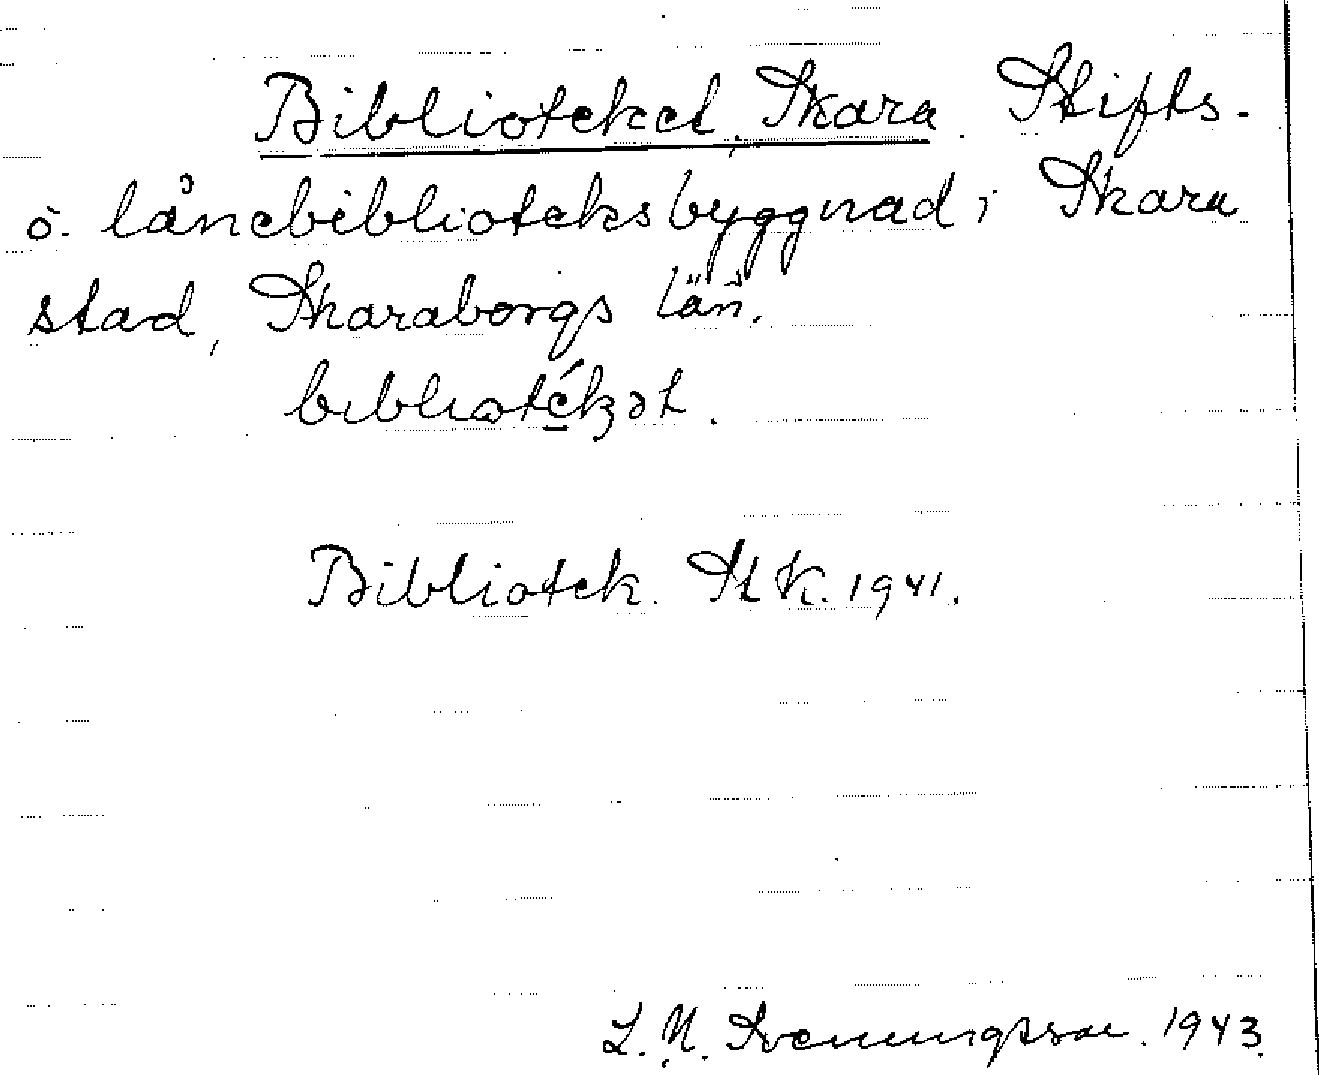 Biblioteket, Skara. Stifts-
o. lånebiblioteksbyggnad i Skara
stad, Skaraborgs län.
bibliotékət.
Bibliotek. St K. 1941.
L. N. Svenungsson. 1943.